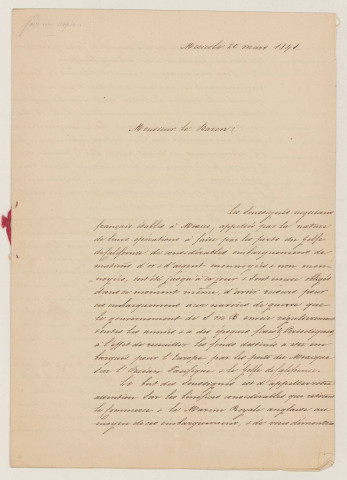 Mexico 20 mars 1841
Monsieur le Baron:
Les Soussignés négociants
français établis à Mexico, appelés par la nature
de leurs opérations à faire par les ports du Golfe
de Californie de considérables embarquemens de
matières d'or & d'argent monnoyées & non mon-
noyées, ont été jusqu'à ce jour & sont encore obligés
dans ce moment même, d'avoir recours pour
ces embarquemens aux navires de guerre que
le gouvernement de S. M. B. envoie régulièrement
toutes les années & à des époques fixes
à l'effet de recueillir les fonds destinés à être em-
barqués pour l'Europe par les ports du Mexique
sur l'Océan Pacifique & le Golfe de Californie.
Le but des Soussignés est d'appeler votre
attention sur les bénéfices considérables que retirent
le Commerce & la Marine Royale anglaise au
moyen de ces embarquemens, & de vous démontrer